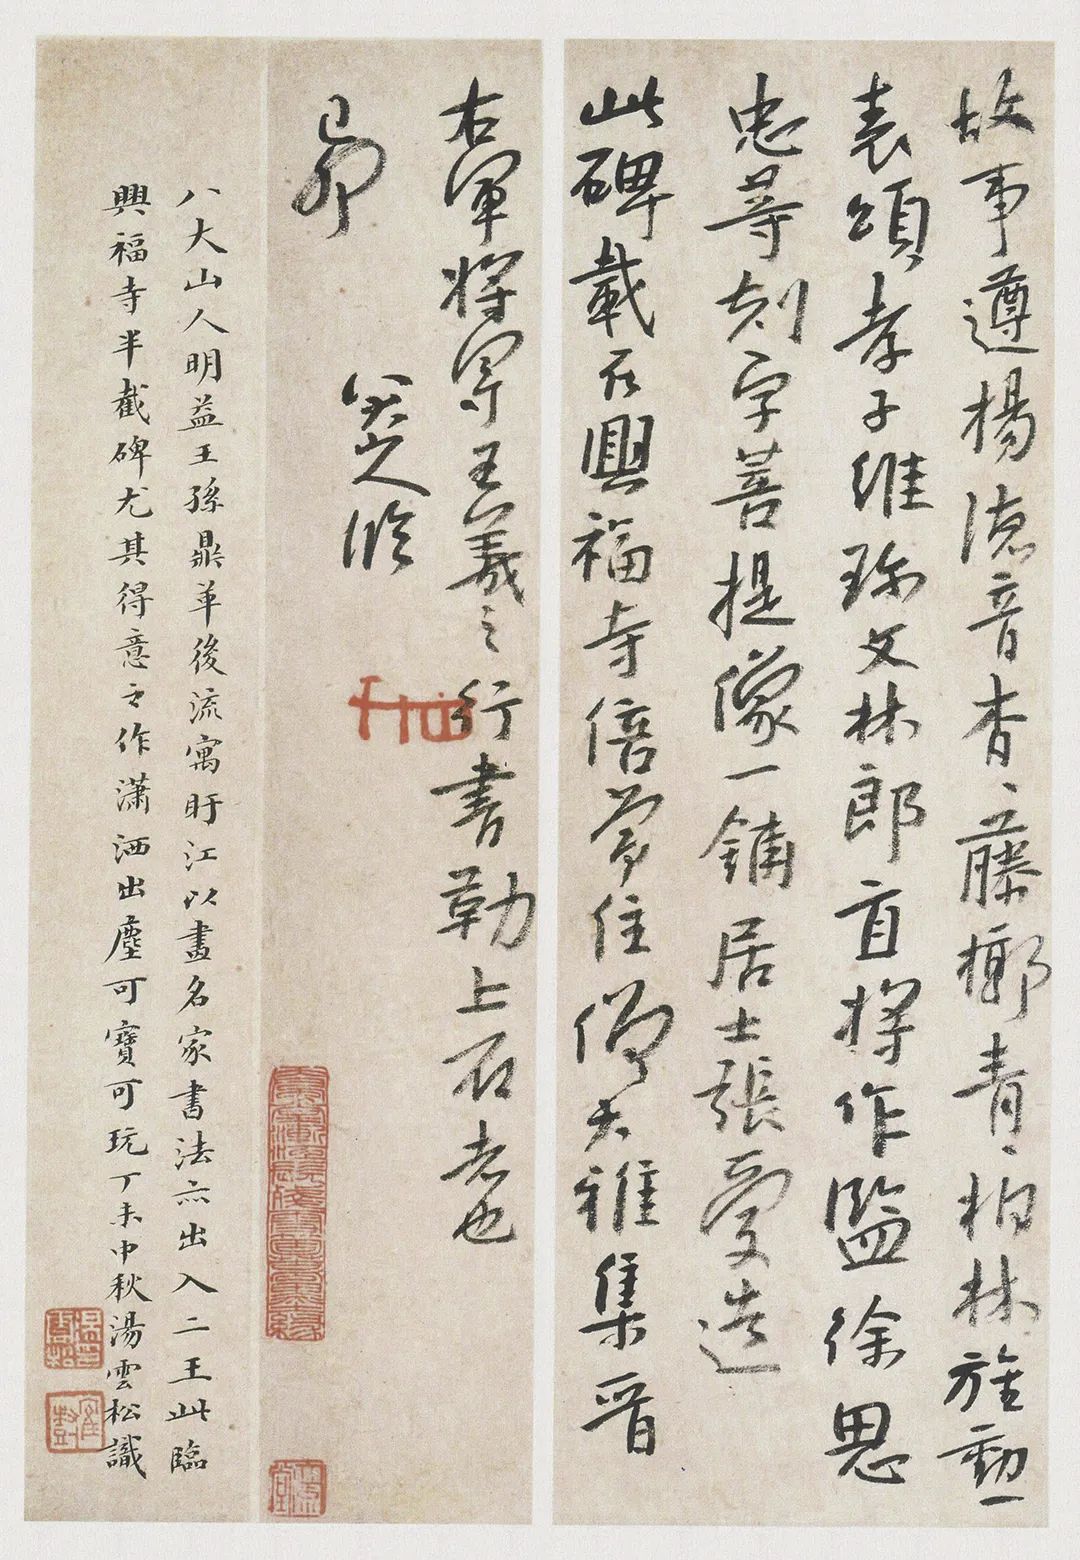 故事遵楊德音杳〻藤槨青〻柏林旌勳一
表頌孝子維珎文林郎直將作監徐思
忠等刻字菩提像一鋪居士張愛造
此碑載在興福寺倍常住僧大雅集晉
右軍將軍王羲之行書勒上石者也
己卯
八大山人臨
八大山人明益王孫鼎革後流寓盱江以畫名家書法亦出入二王此臨
興福寺半截碑尤其得意之作瀟洒出塵可寶可玩丁未中秋湯雲松識